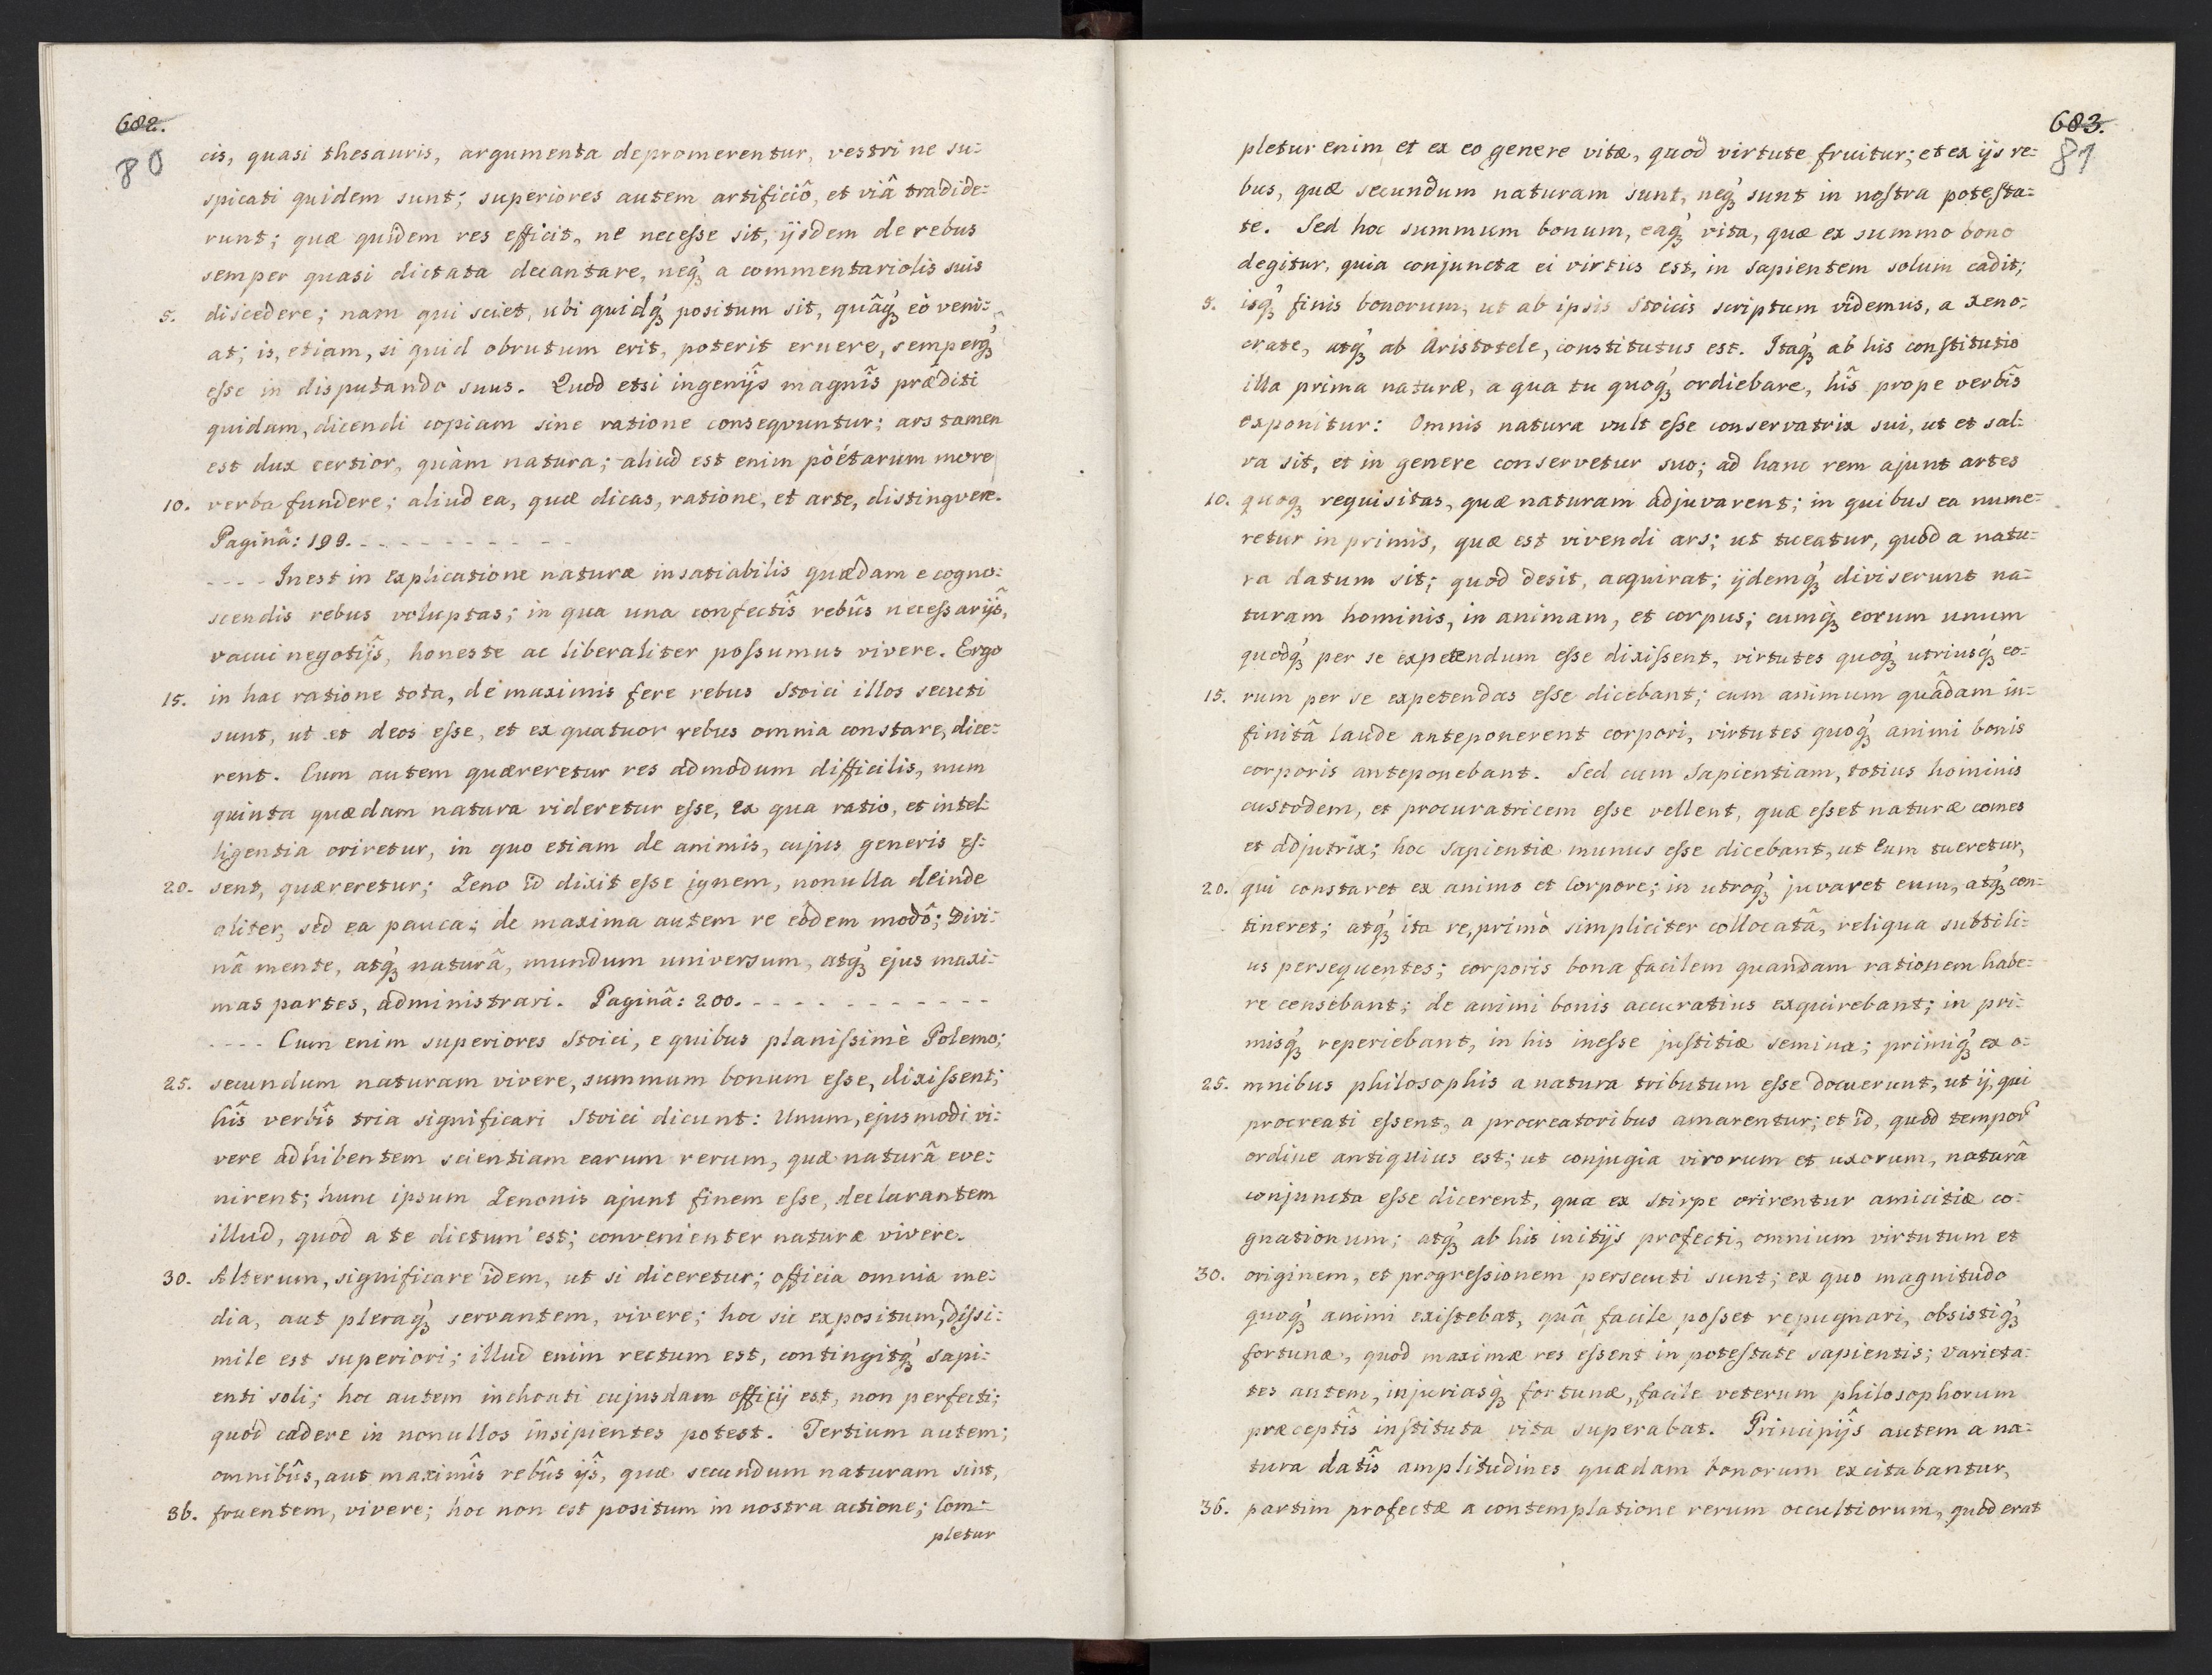 682.
80
cis, quasi thesauris, argumenta depromerentur, vestri ne su:
spicati quidem sunt; superiores autem artificiô, et viâ tradide:
runt; quæ quidem res efficit, ne necesse sit, ijsdem de rebus
semper quasi dictata decantare, neq́ꝫ a commentariolis suis
5. discedere; nam qui sciet, ubi quidq́ꝫ positum sit, quâq́ꝫ eò veni:
at; is, etiam, si quid obrutum erit, poterit eruere, semperq́ꝫ
esse in disputando suus. Quod etsi ingenijs̑ magnis̑ præditi
quidam, dicendi copiam sine ratione consequuntur; ars tamen
est dux certior, quàm natura; aliud est enim pòétarum more
10. verba fundere; aliud ea, quæ dicas, ratione, et arte, distingvere.
Paginâ: 199. - - - - - - - - - -
- - - - Inest in explicatione naturæ insatiabilis quædam e cogno:
scendis rebus voluptas; in qua una confectis̑ rebûs necessarijs̑,
vacui negotijs̑, honeste ac liberaliter possumus vivere. Ergo
15. in hac ratione tota, de maximis fere rebus Stoici illos secuti
sunt, ut et deos esse, et ex quatuor rebus omnia constare, dice:
rent. Cum autem quæreretur res admodum difficilis, num
quinta quædam natura videretur esse, ex qua ratio, et intel:
ligentia oriretur, in quo etiam de animis, cujus generis es:
20. sent, quæreretur; Zeno id dixit esse ignem, nonulla deinde
aliter, sed ea pauca; de maxima autem re eodem modô; Divi:
nâ mente, atq́ꝫ naturâ, mundum universum, atq́ꝫ ejus maxi:
mas partes, administrari. Paginâ: 200. - - - - - - - - - - -
- - - - Cum enim superiores Stoici, e quibus planissimè Polemo;
25. secundum naturam vivere, summum bonum esse, dixissent;
his̑ verbis̑ tria significari Stoici dicunt: Unum, ejusmodi vi:
vere adhibentem scientiam earum rerum, quæ naturâ eve:
nirent; hunc ipsum Zenonis ajunt finem esse, declarantem
illud, quod a te dictum est; convenienter naturæ vivere.
30. Alterum, significare idem, ut si diceretur; officia omnia me:
dia, aut pleraq́ꝫ servantem, vivere; hoc sic expositum, dissi:
mile est superiori; illud enim rectum est, contingitq́ꝫ sapi:
enti soli; hoc autem inchoati cujusdam officij est, non perfecti;
quod cadere in nonullos insipientes potest. Tertium autem;
omnibûs, aut maximis̑ rebûs ijs̑, quæ secundum naturam sint,
36. fruentem, vivere; hoc non est positum in nostra actione; Com:
pletur
683.
81
pletur enim et ex eo genere vitæ, quod virtute fruitur; et ex ijs re:
bus, quæ secundum naturam sunt, neq́ꝫ sunt in nostra potesta:
te. Sed hoc summum bonum, eaq́ꝫ vita, quæ ex summo bono
degitur, quia conjuncta ei virtus est, in sapientem solum cadit;
5. isq́ꝫ finis bonorum, ut ab ipsis Stoicis scriptum videmus, a Xeno:
crate, atq́ꝫ ab Aristotele, constitutus est. Itaq́ꝫ ab his constitutio
illa prima naturæ, a qua tu quoq́ꝫ ordiebare, his̑ prope verbis̑
exponitur: Omnis natura vult esse conservatrix sui, ut et sal:
va sit, et in genere conservetur suo; ad hanc rem ajunt artes
10. quoqꝫ requisitas, quæ naturam adjuvarent; in quibus ea nume:
retur in primis, quæ est vivendi ars; ut tueatur, quod a natu:
ra datum sit; quod desit, acquirat; ijdemq́ꝫ diviserunt na:
turam hominis, in animam, et corpus; cumq́ꝫ eorum unum
quodq́ꝫ per se expetendum esse dixissent, virtutes quoq́ꝫ utriusq́ꝫ eo:
15. rum per se expetendas esse dicebant; cum animum quâdam in:
finitâ laude anteponerent corpori, virtutes quoq́ꝫ animi bonis
corporis anteponebant. Sed cum Sapientiam, totius hominis
custodem, et procuratricem esse vellent, quæ esset naturæ comes
et adjutrix; hoc sapientiæ munus esse dicebant, ut Eum tueretur,
20. qui constaret ex animo et Corpore; in utroq́ꝫ juvaret eum, atq́ꝫ con:
tineret; atq́ꝫ ita re, primò simpliciter collocatâ, reliqua subtili:
us persequentes; corporis bona facilem quandam rationem habe:
re censebant; de animi bonis accuratius exquirebant; in pri:
misq́ꝫ reperiebant, in his inesse justitiæ semina; primiq́ꝫ ex o:
25. mnibus philosophis a natura tributum esse docuerunt, ut ij, qui
procreati essent, a procreatoribus amarentur; et id, quod tempoȓ
ordine antiquius est; ut conjugia virorum et uxorum, naturâ
conjuncta esse dicerent, qua ex stirpe orirentur amicitiæ co:
gnationum; atq́ꝫ ab his initijs profecti, omnium virtutum et
30. originem, et progressionem persecuti sunt; ex quo magnitudo
quoq́ꝫ animi existebat, quâ facile posset repugnari, obsistiq́ꝫ
fortunæ, quod maximæ res essent in potestate sapientis; varieta:
tes autem, injuriasq́ꝫ fortunæ, facile veterum philosophorum
præceptis̑ instituta vita superabat. Principijs̑ autem a na:
tura datis̑ amplitudines quædam bonorum excitabantur,
36. partim profectæ a contemplatione rerum occultiorum, quod erat